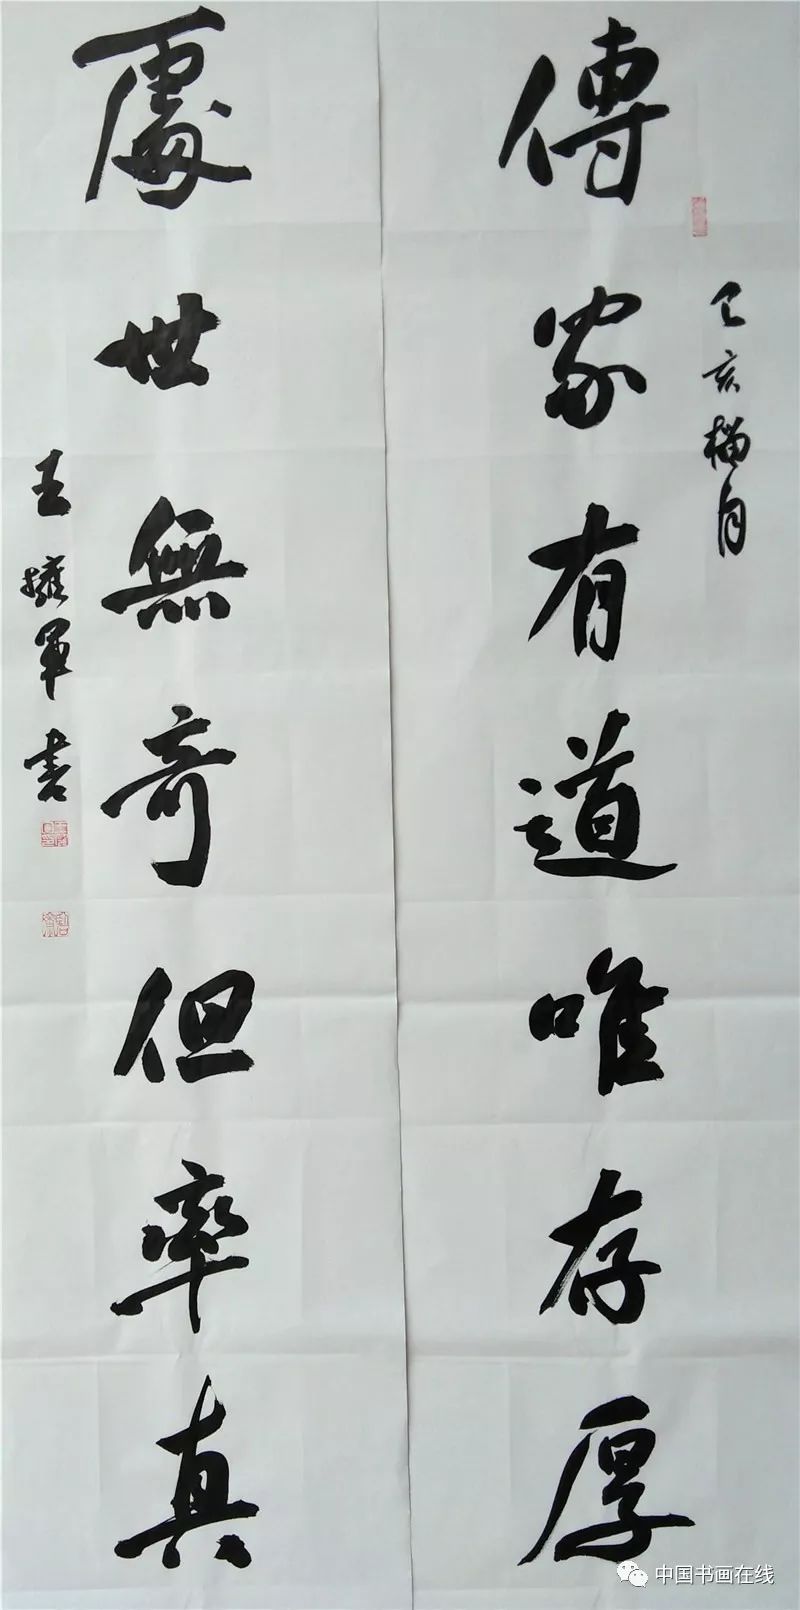 傳家有道唯存厚
乙亥榴月
處世無奇但率真
王擁軍書
中国书画在线